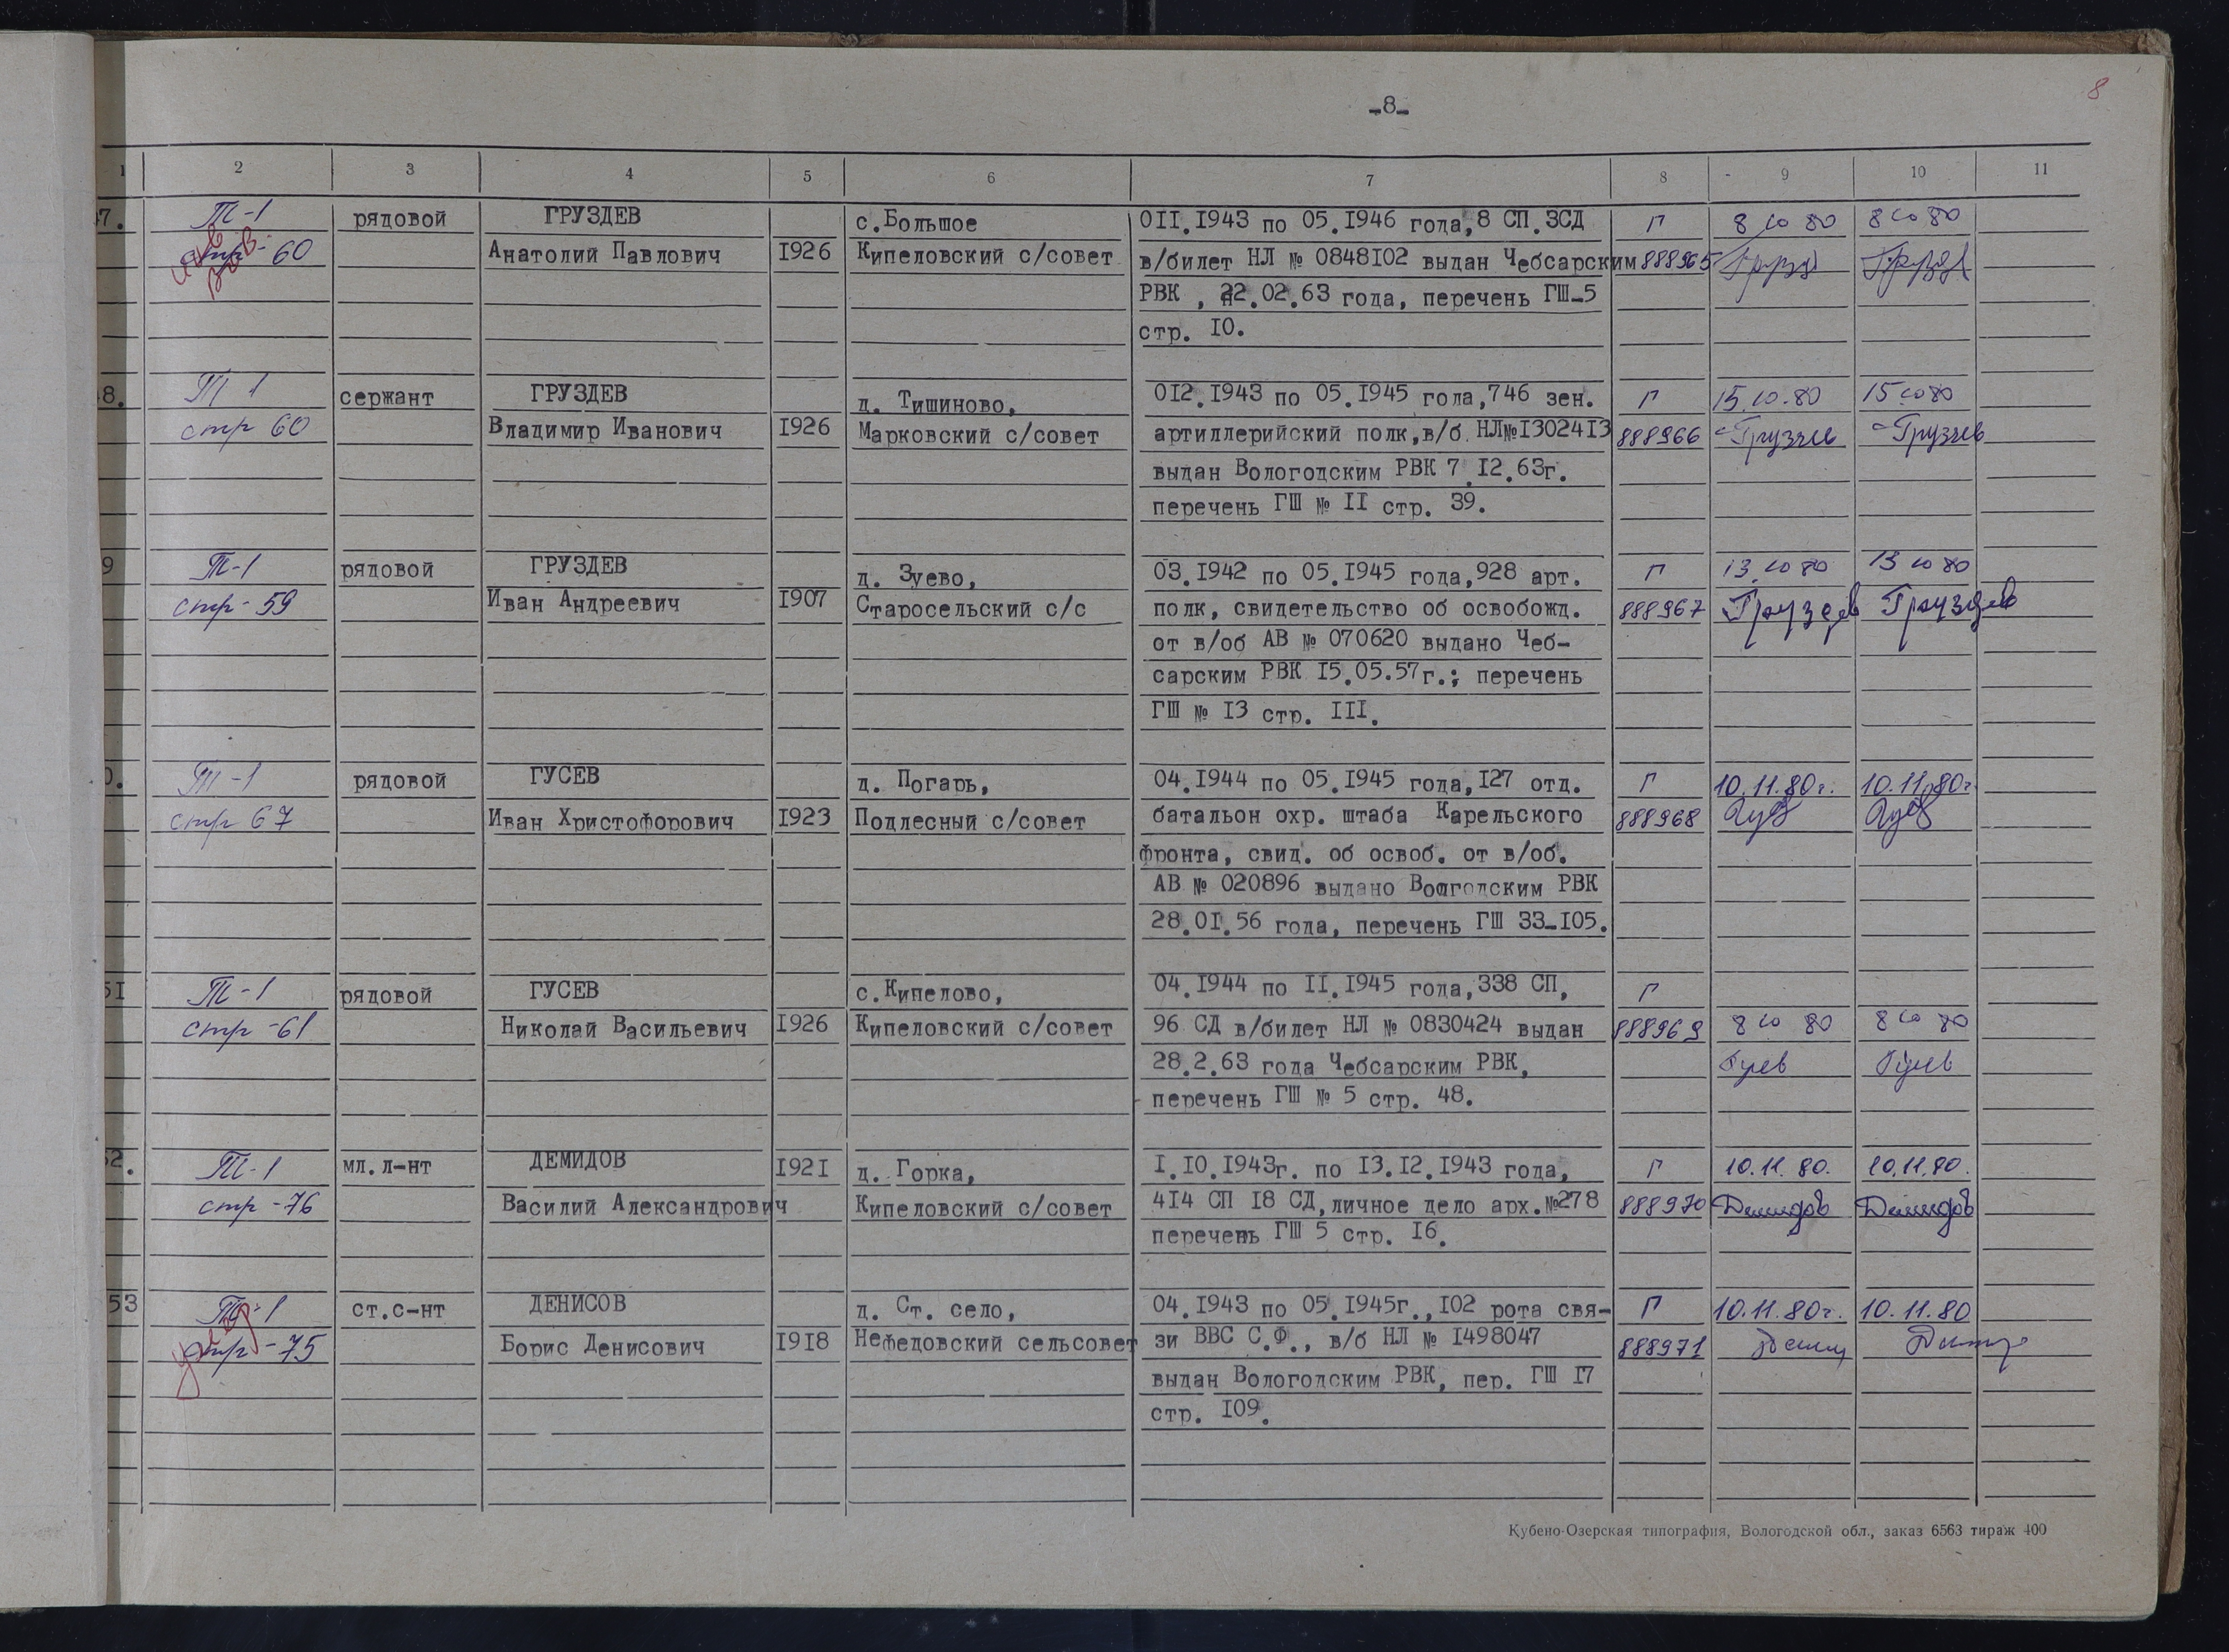 8
-8-
1 2 3 4 5 6 7 8 9 10 11
7. Т-1 рядовой ГРУЗДЕВ с.Большое 0II.I943 по 05.I946 года,8 СП.ЗСД Г 8 10 80 8 10 80
стр-60 Анатолий Павлович I926 Кипеловский с/совет в/билет НЛ № 0848I02 выдан Чебсарским 888965
РВК , 22.02.63 года, перечень ГШ-5
стр. I0.
8. Т 1 сержант ГРУЗДЕВ д. Тишиново, 0I2.I943 по 05.I945 гола,746 зен. Г 15.10.80 15 10 80
стр 60 Владимир Иванович I926 Марковский с/совет артиллерийский полк,в/б НЛ№I3024I3 888966
выдан Вологодским РВК 7.I2.63г.
перечень ГШ № II стр. 39.
9 Т-1 рядовой ГРУЗДЕВ д. Зуево, 03.I942 по 05.I945 года,928 арт. Г 13.10 80 13 10 80
стр-59 Иван Андреевич I907 Старосельский с/с полк, свидетельство об освобожд. 888967 Груздев Груздев
от в/об АВ № 070620 выдано Чеб-
сарским РВК I5.05.57г.; перечень
ГШ № I3 стр. III.
0. Т-1 рядовой ГУСЕВ д. Погарь, 04.I944 по 05.I945 года,I27 отд. Г 10.11.80г. 10.11.80г
стр 67 Иван Христофорович I923 Подлесный с/совет батальон охр. штаба Карельского 888968
фронта, свид. об освоб. от в/об.
АВ № 020896 выдано Вологодским РВК
28.0I.56 года, перечень ГШ 33-I05.
5I Т-1 рядовой ГУСЕВ с.Кипелово, 04.I944 по II.I945 года,338 СП, Г
стр-61 Николай Васильевич I926 Кипеловский с/совет 96 СД в/билет НЛ № 0830424 выдан 888969 8 10 80 8 10 80
28.2.63 года Чебсарским РВК,
перечень ГШ № 5 стр. 48.
52. Т-1 мл.л-нт ДЕМИДОВ I92I д. Горка, I.I0.I943г. по I3.I2.I943 года, Г 10.11.80. 10.11.80.
стр-76 Василий Александрович Кипеловский с/совет 4I4 СП I8 СД,личное дело арх.№278 888970 Демидов Демидов
перечень ГШ 5 стр. I6.
53 Т-1 ст.с-нт ДЕНИСОВ д. Ст. село, 04.I943 по 05.I945г.,I02 рота свя- Г 10.11.80г. 10.11.80
стр-75 Борис Денисович I9I8 Нефедовский сельсовет зи ВВС С.Ф., в/б НЛ № I498047 888971
выдан Вологодским РВК, пер. ГШ I7
стр. I09.
Кубено-Озерская типография, Вологодской обл., заказ 6563 тираж 400